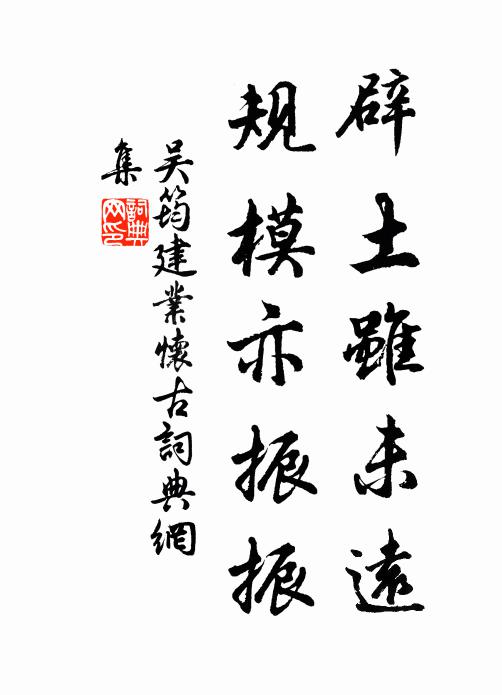 辟土雖未遠
規模亦振振
吳筠建業懷古詞典網
集
詞典
网印